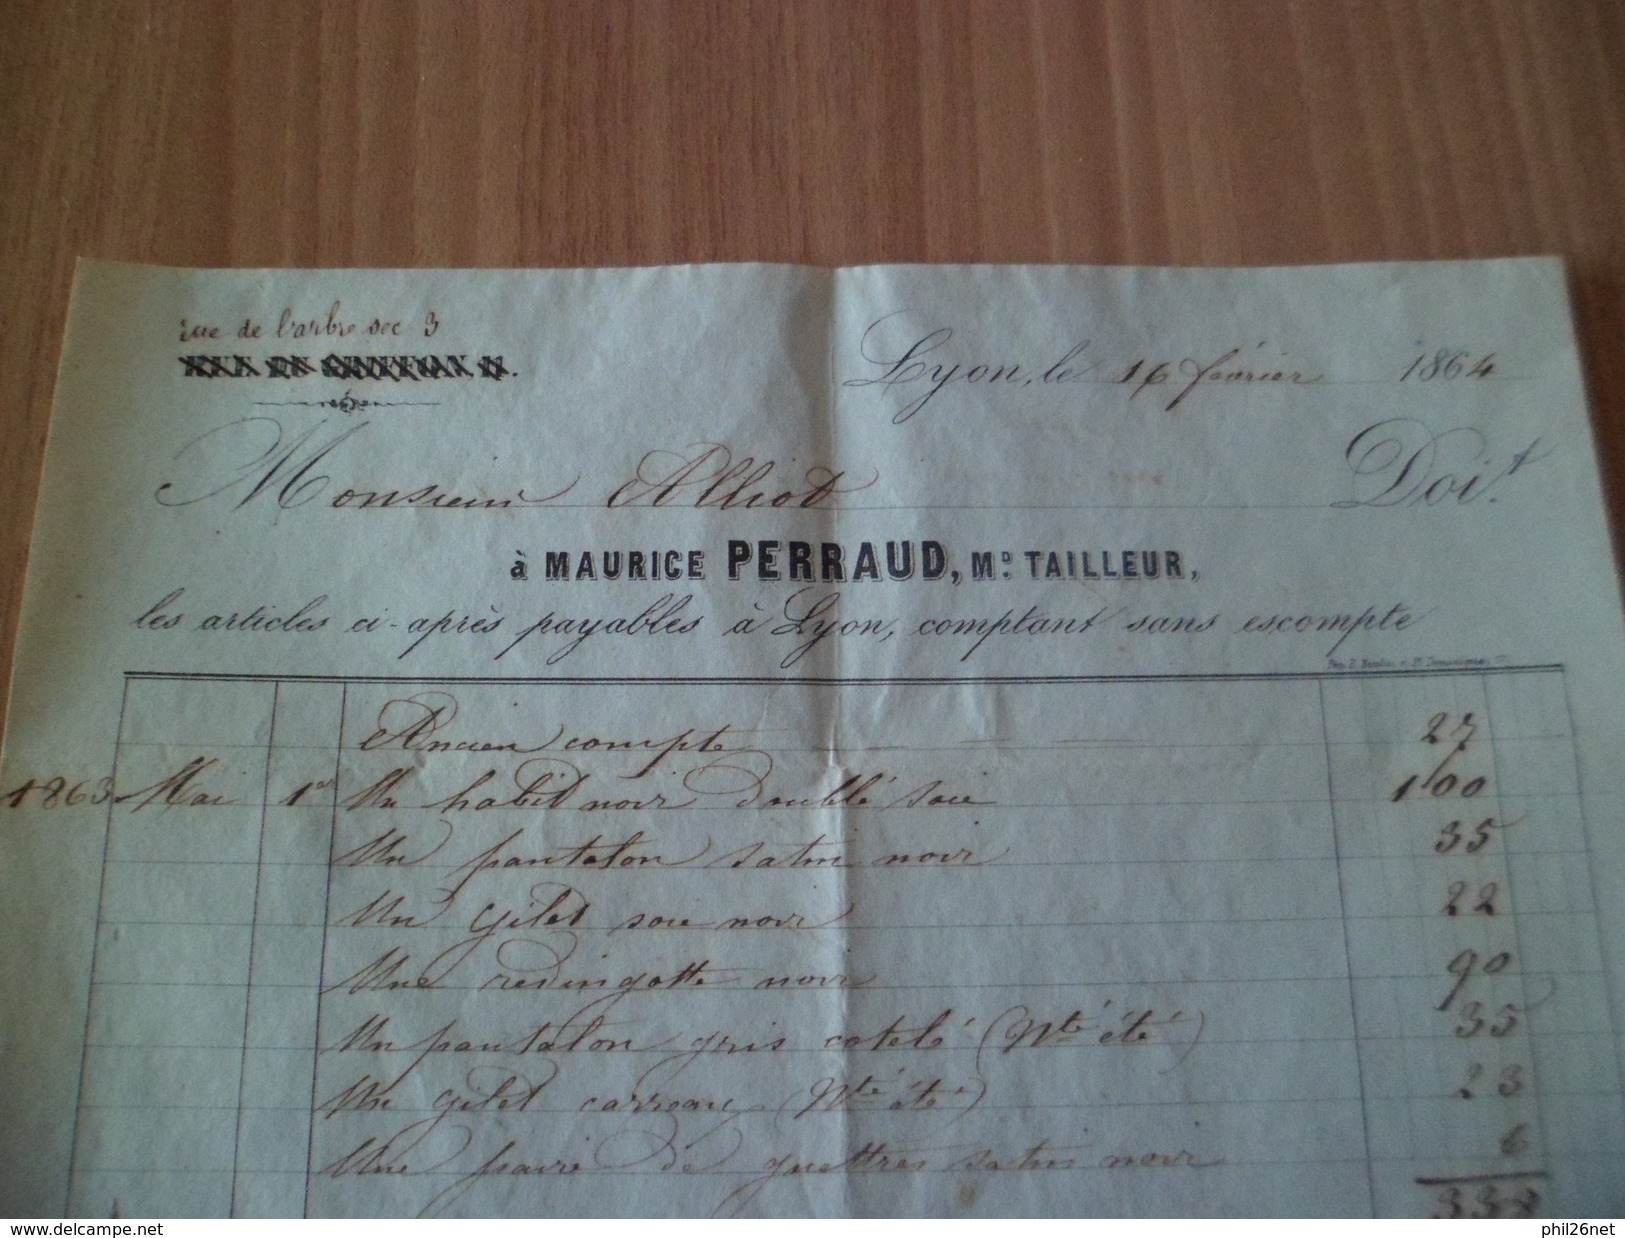 rue de l'arbre sec 3
Lyon, le 16 février 1864
Monsieur Alliod Doit
à MAURICE PERRAUD, Md. TAILLEUR,
les articles ci-après payables à Lyon, comptant sans escompte
Ancien compte 27
1863 Mai 1er Un habit noir doublé soie 100
Un pantalon satin noir 35
Un gilet soie noir 22
Une redingotte noir 90
Un pantalon gris cotelé (Nté été) 35
Un gilet carreau (Nté été) 23
Une paire de guettres satin noir 6
338
delcampe.net
phil26net